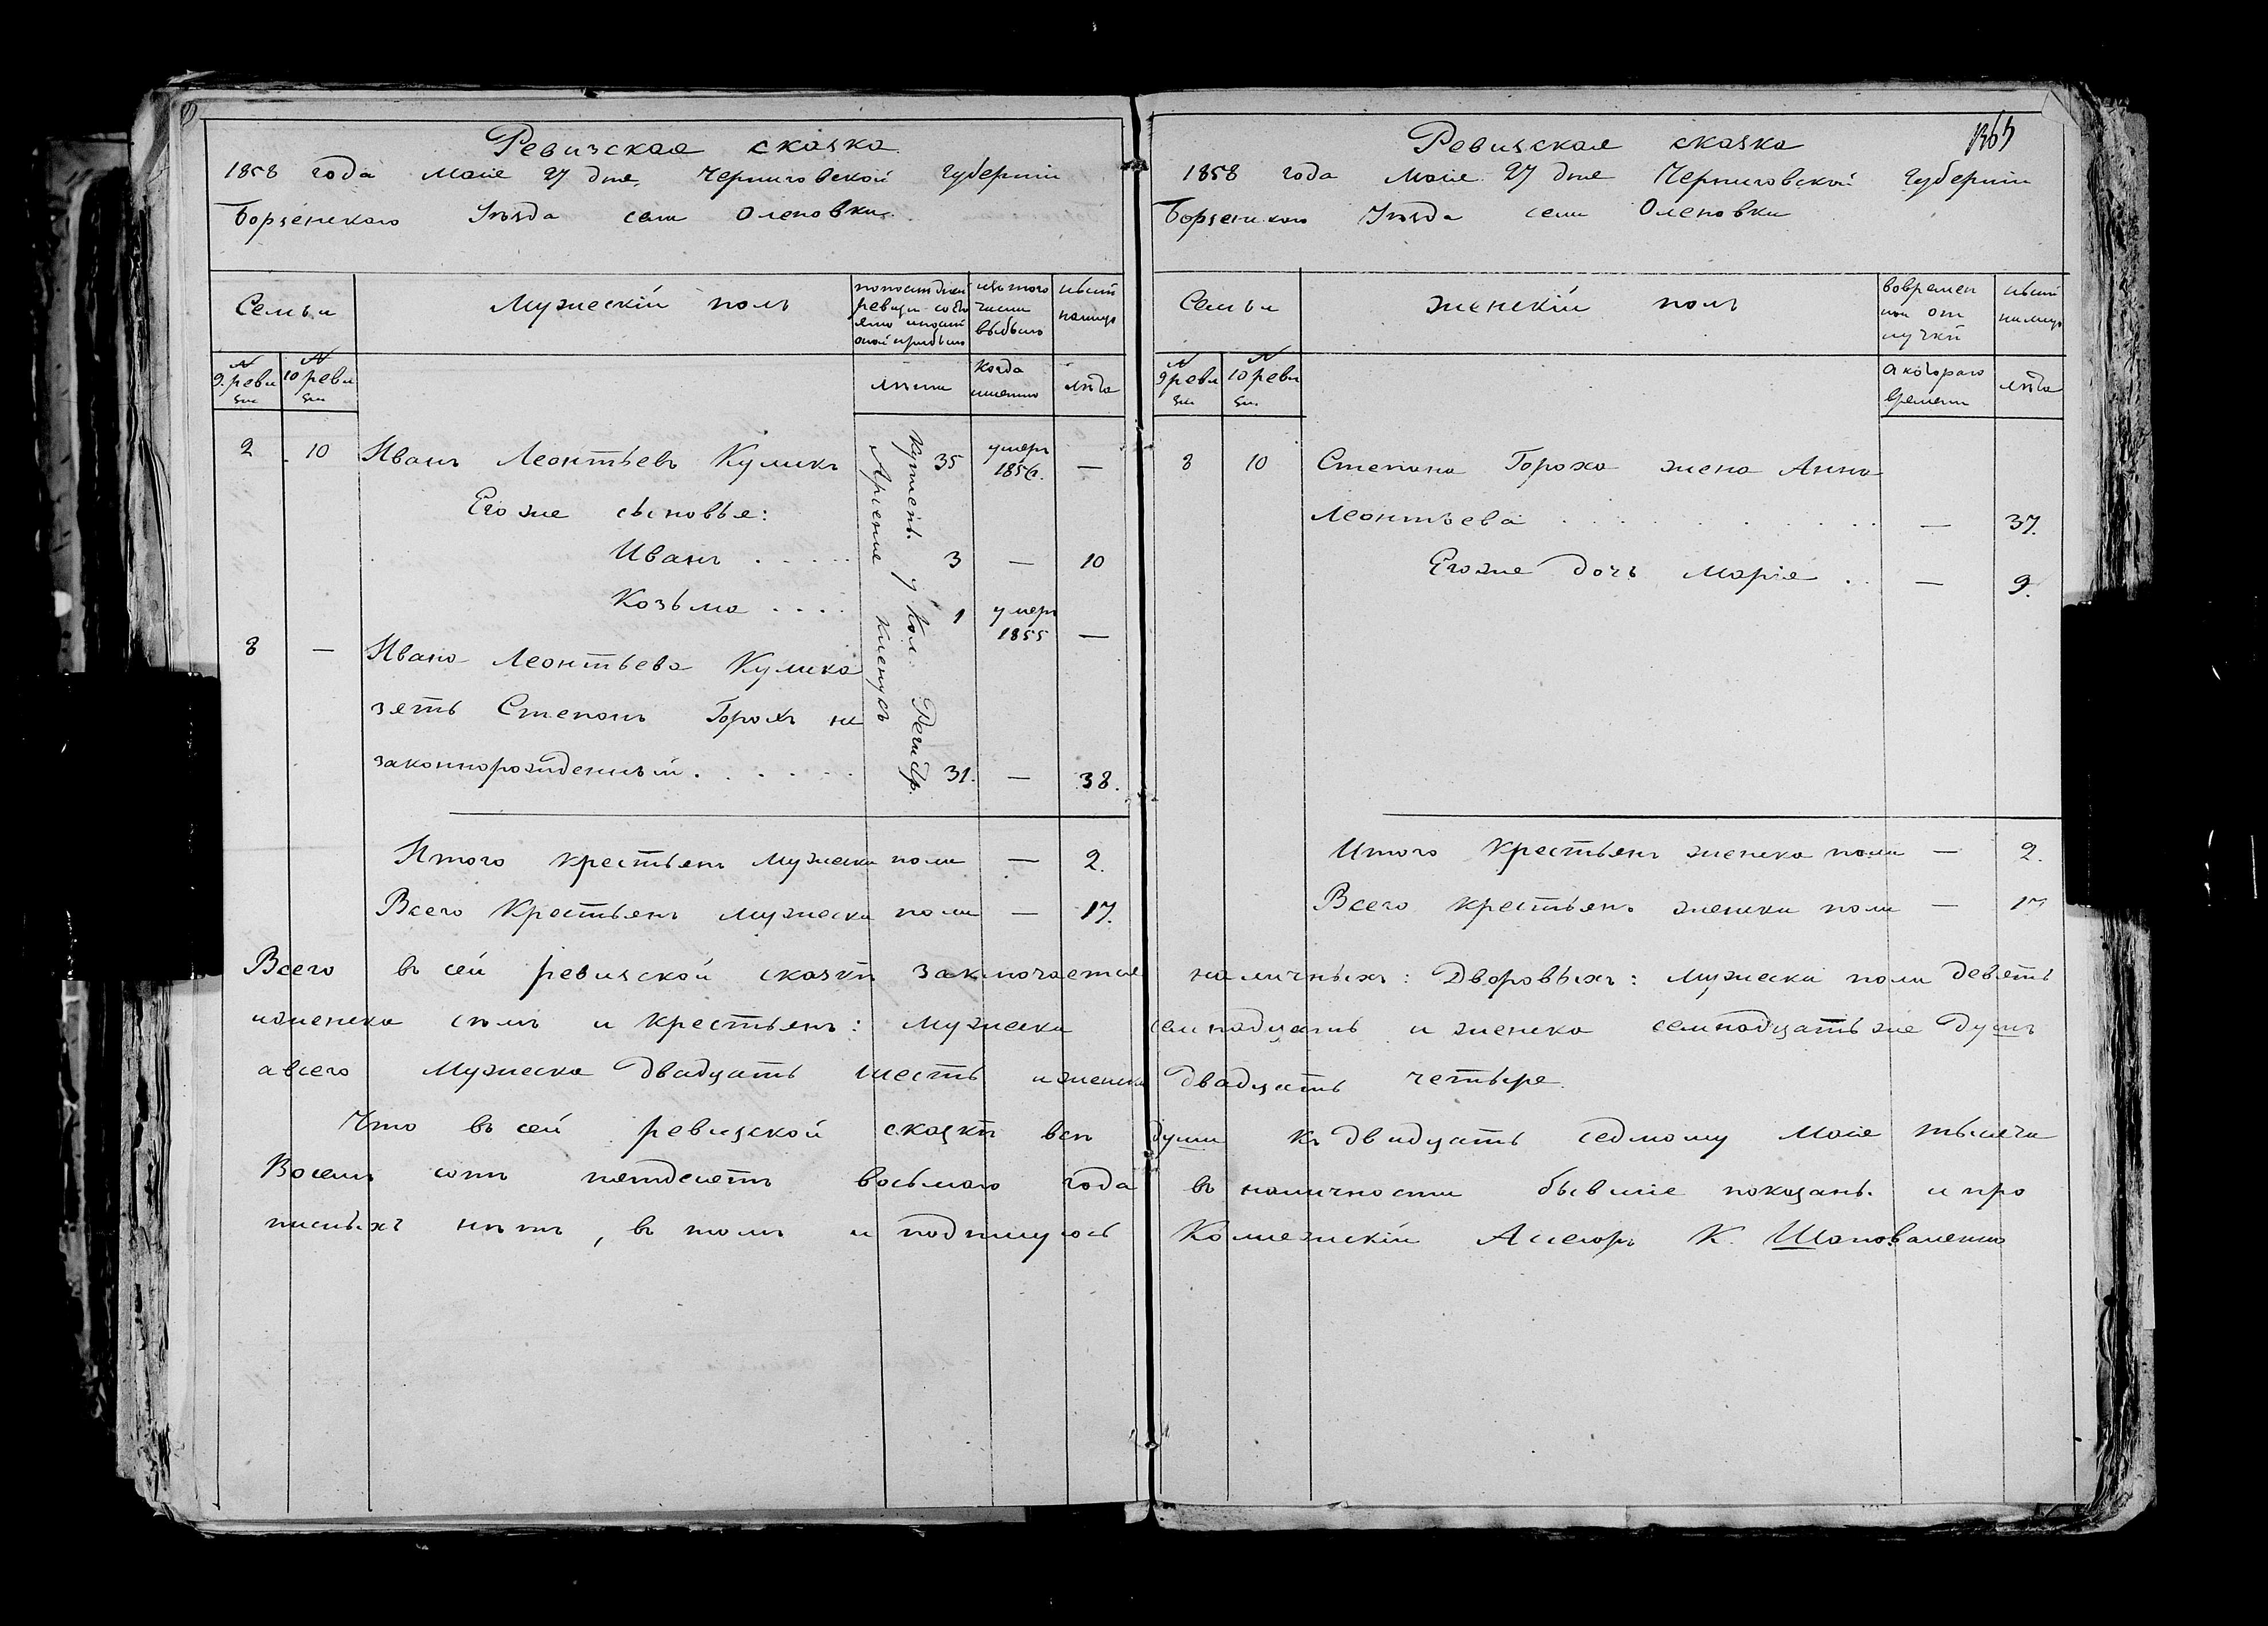 Ревизская сказка
1858 года Маіе 27 дня, Черниговской Губерніи
Борзенского Уѣзда села Оленовки
Семьи
Мужескій полъ
изъ того числа выбыло
нынѣ налицо
N 9. ревизіи
N 10 реви зіи
лѣта
Когда именно
лѣта
2 10 Иванъ Леонтьевъ Куликъ 35 умеръ 1856. —
Его же сыновья:
Иванъ . . . . . 3 — 10
Козьма . . . . 1 умеръ 1855 —
8 — Ивана Леонтьева Кулика
зять Степанъ Горохъ не
законнорожденный . . . . . . 31. — 38.
Купленъ у Кол. Регистр.
Арсенія
Итого крестьянъ мужеска пола — 2.
Всего Крестьянъ мужеска пола — 17.
Ревизская сказка
1365
1858 года Маіе 27 дня Черниговской Губерніи
Борзенского Уѣзда села Оленовки
Семьи
женскій полъ
вовремен ной от лучки
нынѣ налицо
N 9 реви зіи
N 10 реви зіи
с котораго времени
лѣта
8 10 Степана Гороха жена Анна
Леонтьева . . . . . . . . . — 37.
Его же дочь Марія . . — 9.
Итого Крестьянъ женска пола — 2.
Всего крестьянъ женска пола — 17
Всего въ сей ревизской сказкѣ заключается наличныхъ: Дворовыхъ: мужеска пола девять
и женска семь и крестьянъ: мужеска семнадцать и женска семнадцать же душъ
а всего мужеска двадцать шесть и женска двадцать четыре.
Что въ сей ревизской сказкѣ всѣ души къ двадцать седмому Маіе тысяча
Восемь сотъ пятдесятъ восьмаго года въ наличности бывшіе показаны и про
писныхъ нѣтъ, въ томъ и подпишуюсь Колежскій Асесоръ К. Шаповаленко